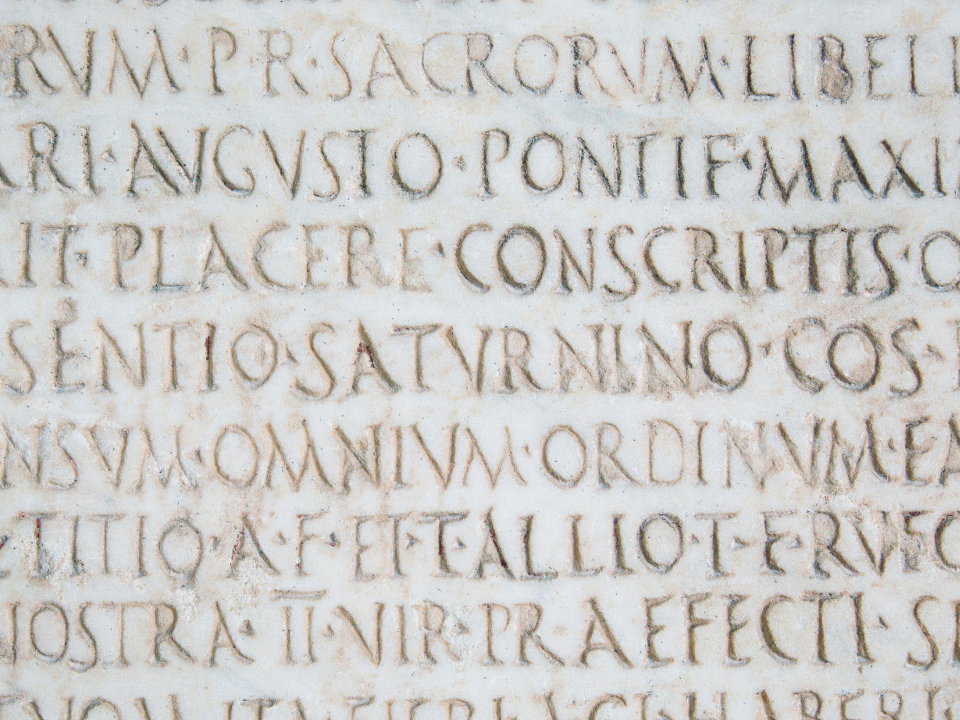 RVM·PR·SACRORVM·LIBELL
ARI·AVGVSTO·PONTIF·MAXI
IT·PLACERE·CONSCRIPTIS·
SENTIO·SATVRNINO·COS·
NSVM·OMNIVM·ORDINVM·EA
TITIO·A·F·ET·TALLIO·T·F·RVFO
NOSTRA·II·VIR·PRAEFECTI·